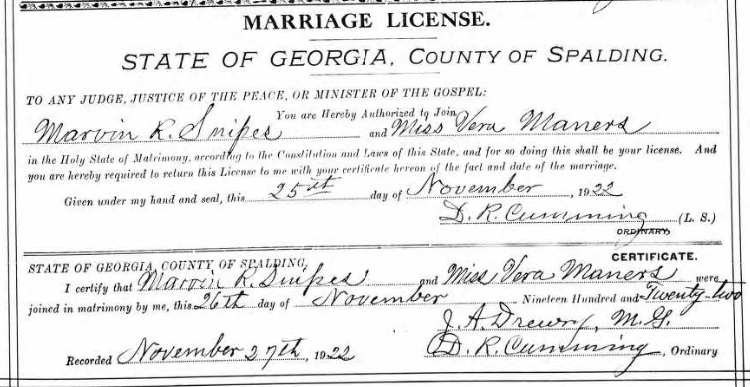 MARRIAGE LICENSE.
STATE OF GEORGIA, COUNTY OF SPALDING.
TO ANY JUDGE, JUSTICE OF THE PEACE, OR MINISTER OF THE GOSPEL:
You are Hereby Authorized to Join
Marvin R. Snipes and Miss Vera Maners
in the Holy State of Matrimony, according to the Constitution and Laws of this State, and for so doing this shall be your license. And
you are hereby required to return this License to me with your certificate hereon of the fact and date of the marriage.
Given under my hand and seal, this 25th day of November, 1922
D. R. Cumming (L. S.)
ORDINARY
CERTIFICATE.
STATE OF GEORGIA, COUNTY OF SPALDING,
I certify that Marvin R. Snipes and Miss Vera Maners were
joined in matrimony by me, this 26th day of November Nineteen Hundred and Twenty-two
J. A. Drewry, M. G.
Recorded November 27th, 1922 D. R. Cumming, Ordinary